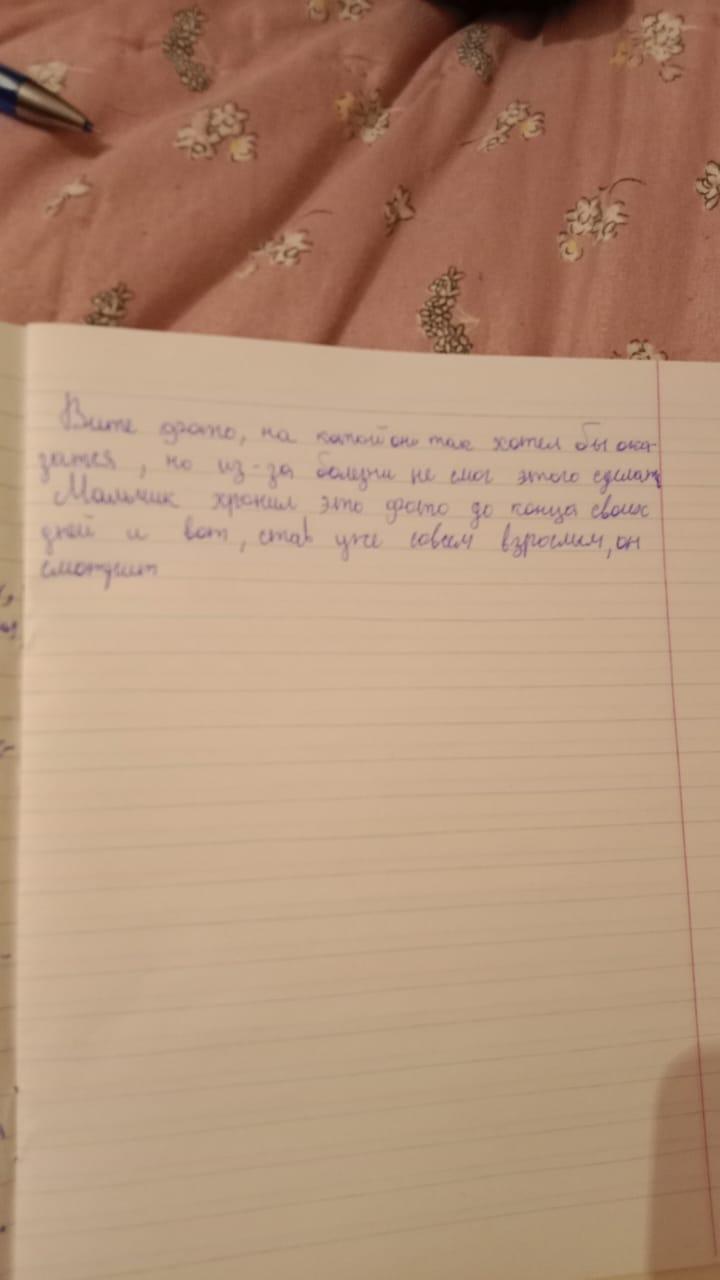 Вите фото, на катой он так хотел бы ока-
затся, но из-за болезни не смог этого сделать
Мальчик хронил это фото до конца своих
дней и вот, став уже совсем взрослым, он
смотрит